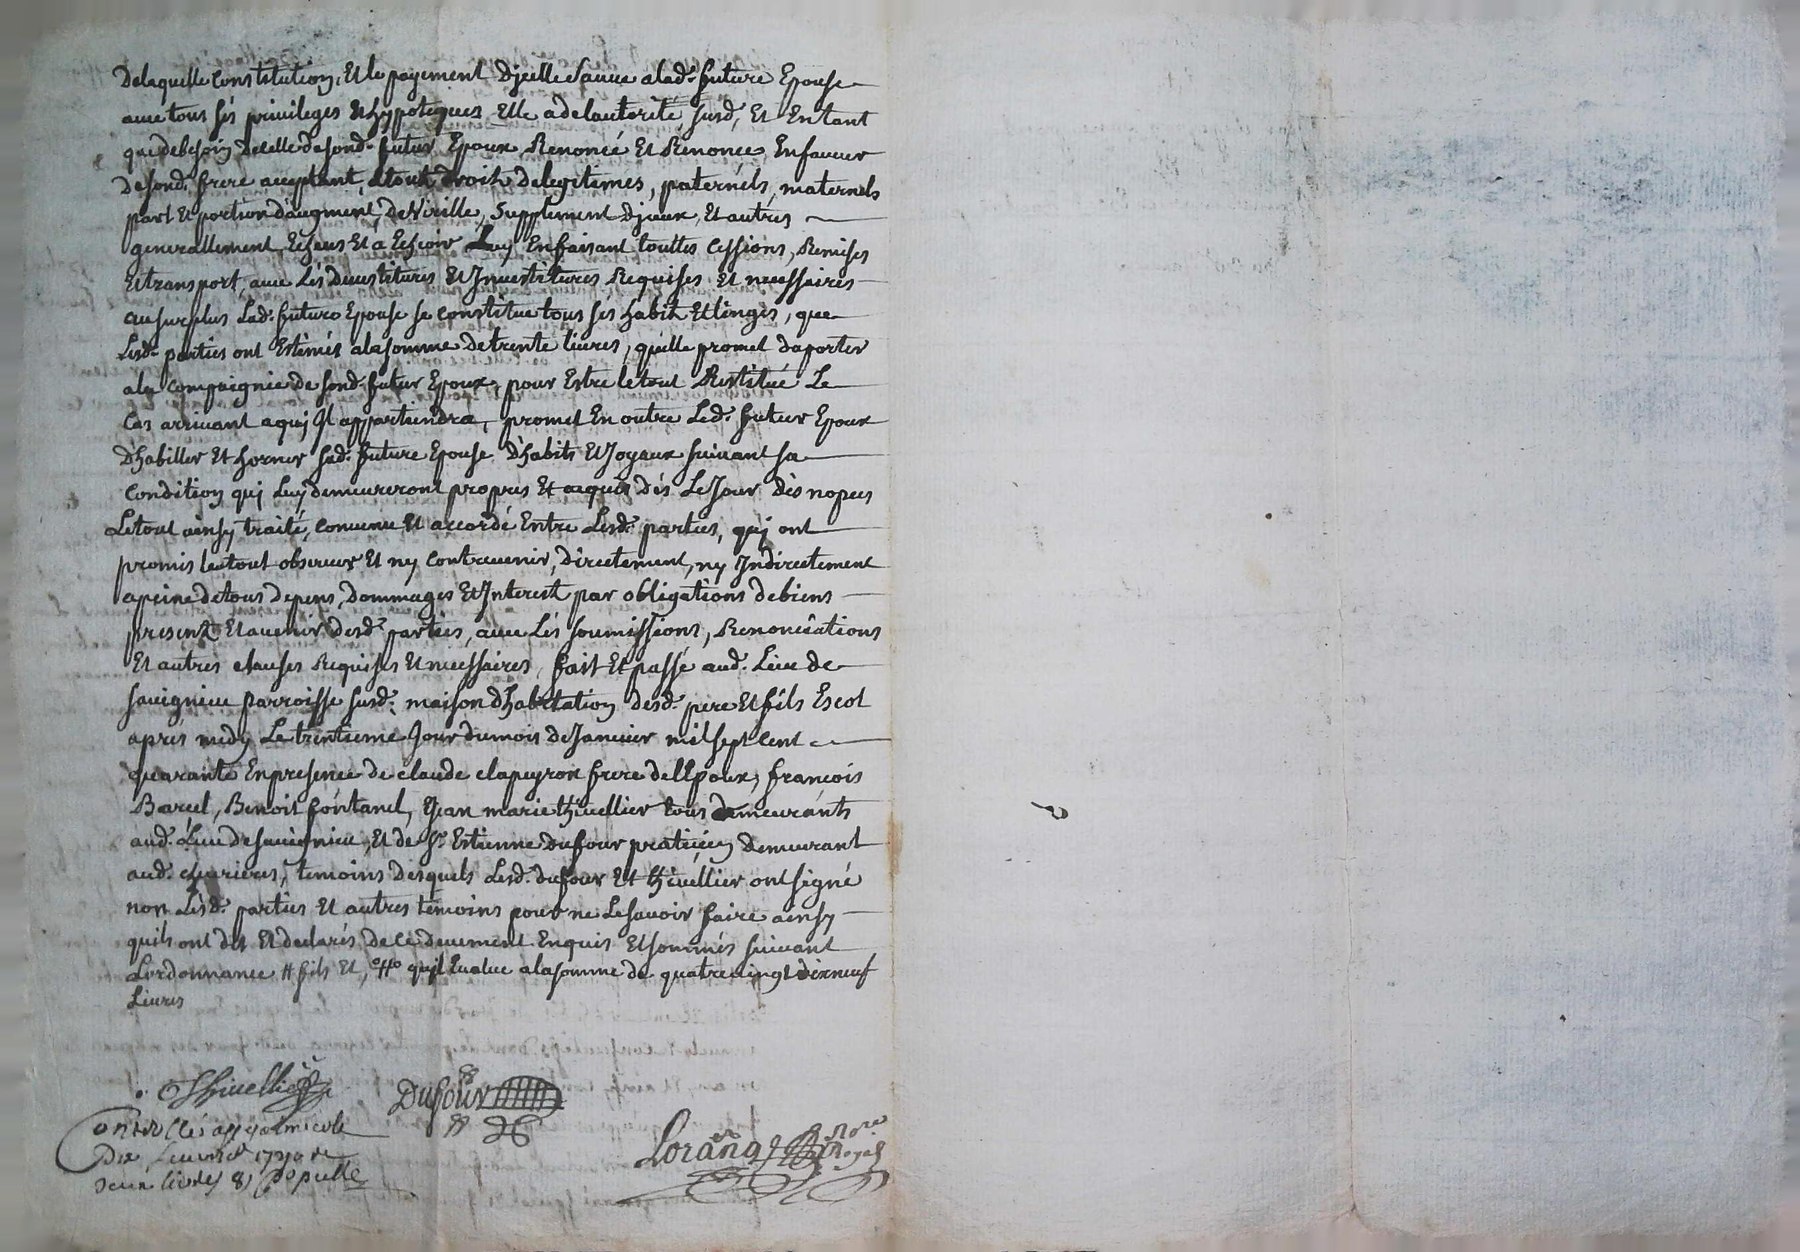 Delaquelle Constitution, Et le payement Djcelle Sauve alad. future Epouse
avec tous sés privileges Et hypoteques Elle a delautorité susd, Et Entant
que debesoin De celle de sond. futur Epoux Renoncé Et Renonce Enfaveur
De sond. frere acceptant, atout droit delegitimes, paternels, maternels
part Et portion d'augment, de Virille, Supplement Djceux, Et autres
generallement Echeus Et a Echeoir Luy Enfaisant touttes Cessions, Remises
Et transport, avec Lés Devestitures Et Jnvestitures Requises Et necessaires
au surplus Lad. future Epouse se constitue tous sés habits Et linges, que
Lesd. parties ont Estimés alasomme de trente livres, quelle promet daporter
ala Compaignie de sond. futur Epoux, pour Estre letout Restitué Le
Cas arrivant a quj Jl appartiendra, promet En outre Led. futur Epoux
D'habiller Et horner sad. future Epouse D'habits Et Joyaux suivant sa
Condition quj Luy demeureront propres Et acquis dés Le Jour dés nopces
Letout ainsy traité, Convenu Et accordé Entre Lesd. parties, quj ont
promis letout observer Et ny Contrevenir, Directement, ny Indirectement
apeine de tous depens, Dommages Et Interest par obligations de biens
presents Et avenir desd. parties, avec Lés soumissions, Renonciations
Et autres clauses Requises Et necessaires, fait Et passé aud. Lieu de
Savignieu parroisse susd. maison d'habitation desd. pere Et fils Escot
apres midy Le trentieme Jour du mois de Janvier mil sept Cent
quarante En presence de claude clapeyron frere de l'Epoux, francois
Barcel, Benoit fontanel, Jean marie thivellier tous demeurants
aud. Lieu de Savignieu, Et de Sr. Estienne Dufour praticien demeurant
aud. chevrieres, temoins desquels Lesd. dufour Et thivellier ont signé
non Lesd. parties Et autres temoins pour ne Lesavoir faire ainsy
quils ont dit Et declarés de ce deuement Enquis Et sommés suivant
Lordonnance # fils Et, quj Evalue alasomme de quatrevingt dixneuf
Livres
Thivellier
Dufour
Controllé
Dix
Loranq Nore Royal